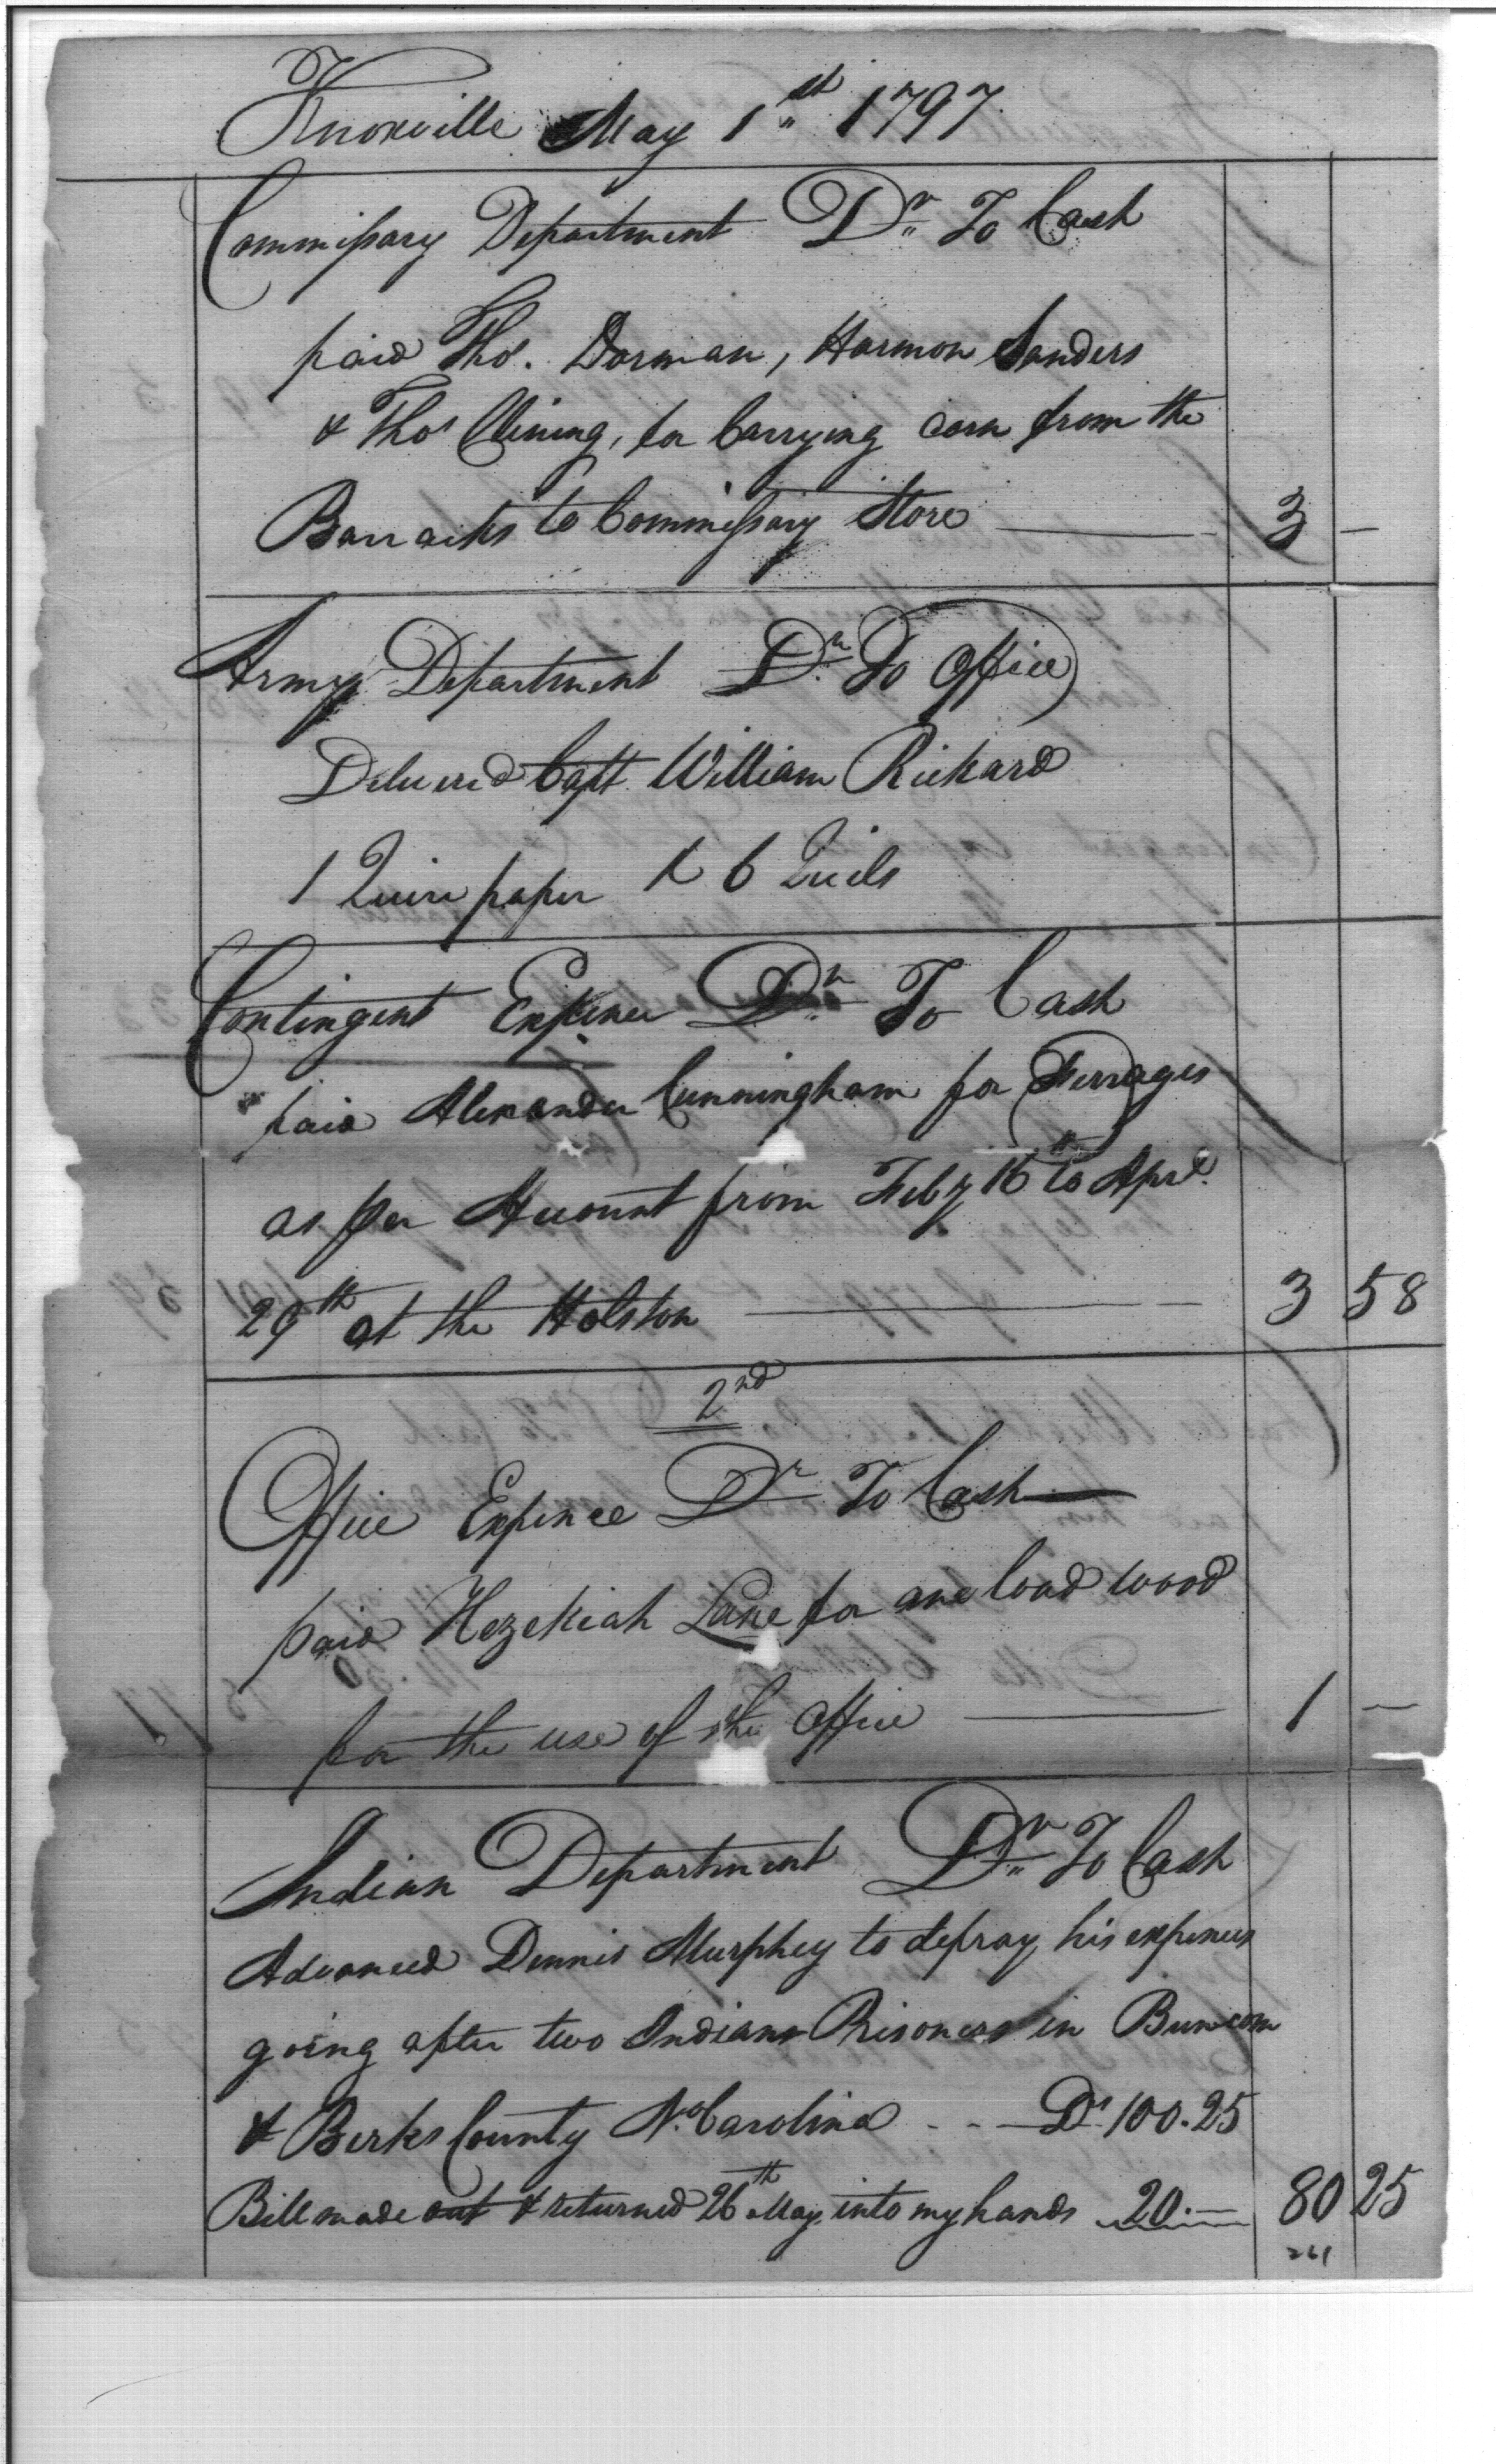 Knoxville May 1st 1797
Commissary Department Dr To Cash
paid Thos. Dorman, Harmon Sanders
& Thos Vining, for Carrying corn from the
Barracks to Commissary Store 3 —
Army Department Dr To Office
Deliverd Capt William Rickard
1 Quire paper & 6 Quils
Contingent Expence Dr To Cash
paid Alexander Cunningham for Ferrages
as per Account from Feby 16th to Aprl.
29th at the Holston 3 58
2nd
Office Expence Dr To Cash
paid Hezekiah Lane for one load wood
for the use of the Office 1 —
Indian Department Dr To Cash
Advanced Dennis Murphey to defray his expences
going after two Indian Prisoners in Buncom
& Berks County No. Carolina - - Ds 100.25
Bill made out & returned 26th May, into my hands 20.— 80 25
261